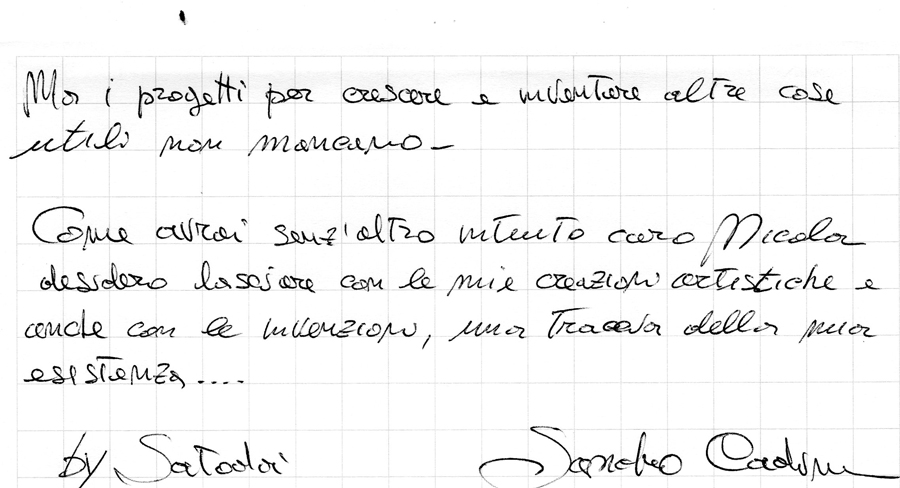 Ma i progetti per crescere e inventare altre cose
utili non mancano -
Come avrai senz'altro intuito caro Nicola
desidero lasciare con le mie creazioni artistiche e
anche con le invenzioni, una traccia della mia
esistenza....
by Satodai Sandro